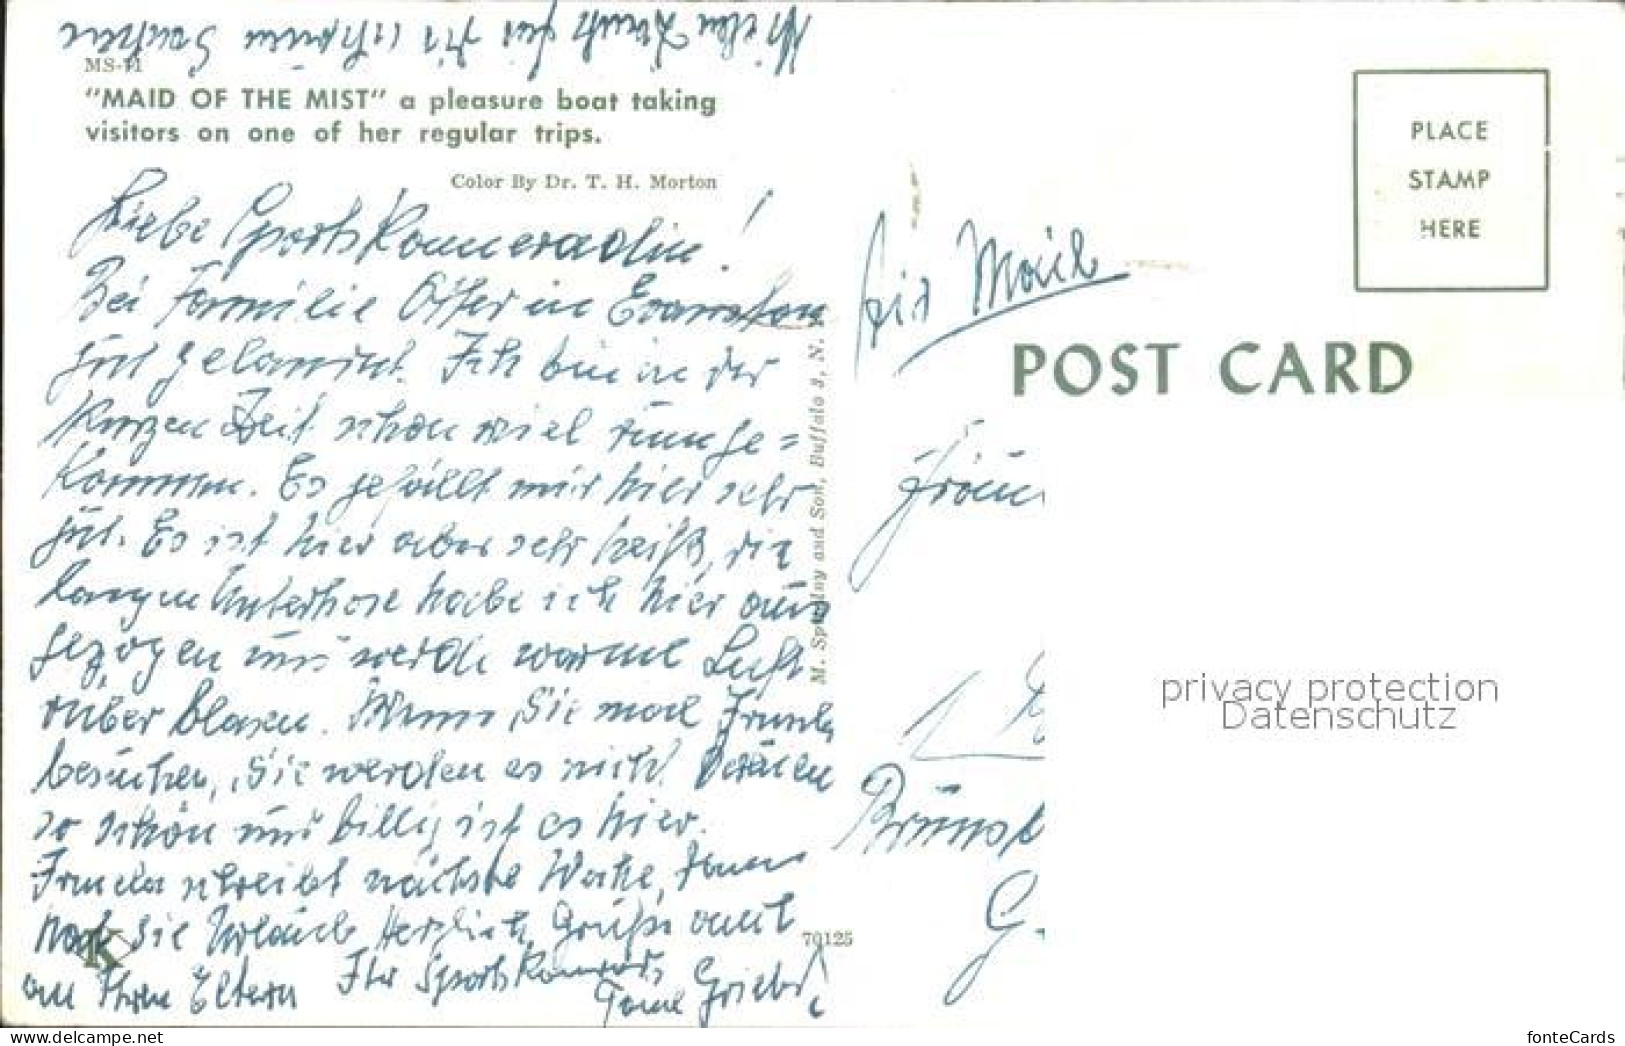 Vielen Dank für die schönen Sachen
MS-11
"MAID OF THE MIST" a pleasure boat taking
visitors on one of her regular trips.
Color By Dr. T. H. Morton
Liebe Sportskammeradin!
Bei Familie in Evanston
gut gelandet. Ich bin in der
kurzen Zeit schon viel rumge=
kommen. Es gefällt mir hier sehr
gut. Es ist hier aber sehr heiß, die
langen Unterhose habe ich hier aus
gezogen und werde warme Luft
rüber blasen. Wenn Sie mal
besuchen, Sie werden es nicht bereuen
so schön und billig ist es hier.
schreibt nächste Woche, dann
hat Sie Urlaub Herzliche Grüße auch
an Ihre Eltern Ihr Sportskamerad,
M. Spozdlny and Son, Buffalo 3, N. Y.
70125
K
Air Mail
PLACE
STAMP
HERE
POST CARD
privacy protection
Datenschutz
G.
fonteCards